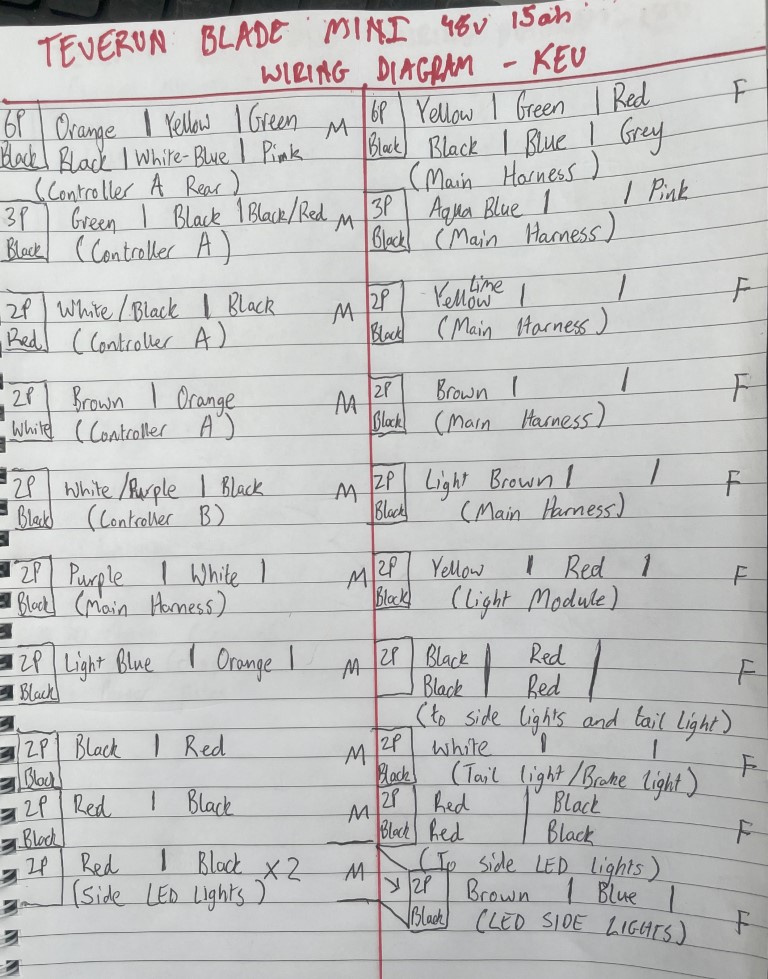 TEVERUN BLADE MINI 48v 15ah
WIRING DIAGRAM - KEV
6P Orange | Yellow | Green M
Black Black | White-Blue | Pink
(Controller A Rear)
3P Green | Black | Black/Red M
Black (Controller A)
2P White/Black | Black M
Red (Controller A)
2P Brown | Orange M
White (Controller A)
2P White/Purple | Black M
Black (Controller B)
2P Purple | White | M
Black (Main Harness)
2P Light Blue | Orange | M
Black
2P Black | Red M
Black
2P Red | Black M
Black
2P Red | Black x2 M
(Side LED Lights)
6P Yellow | Green | Red F
Black Black | Blue | Grey
(Main Harness)
3P Aqua Blue | | Pink
Black (Main Harness)
Lime
2P Yellow | | F
Black (Main Harness)
2P Brown | | F
Black (Main Harness)
2P Light Brown | | F
Black (Main Harness)
2P Yellow | Red | F
Black (Light Module)
2P Black | Red | F
Black | Red |
(to side lights and tail light)
2P White | | F
Black (Tail light/Brake light)
2P Red | Black
Black Red | Black F
(To side LED lights)
2P Brown | Blue |
Black (LED SIDE LIGHTS) F